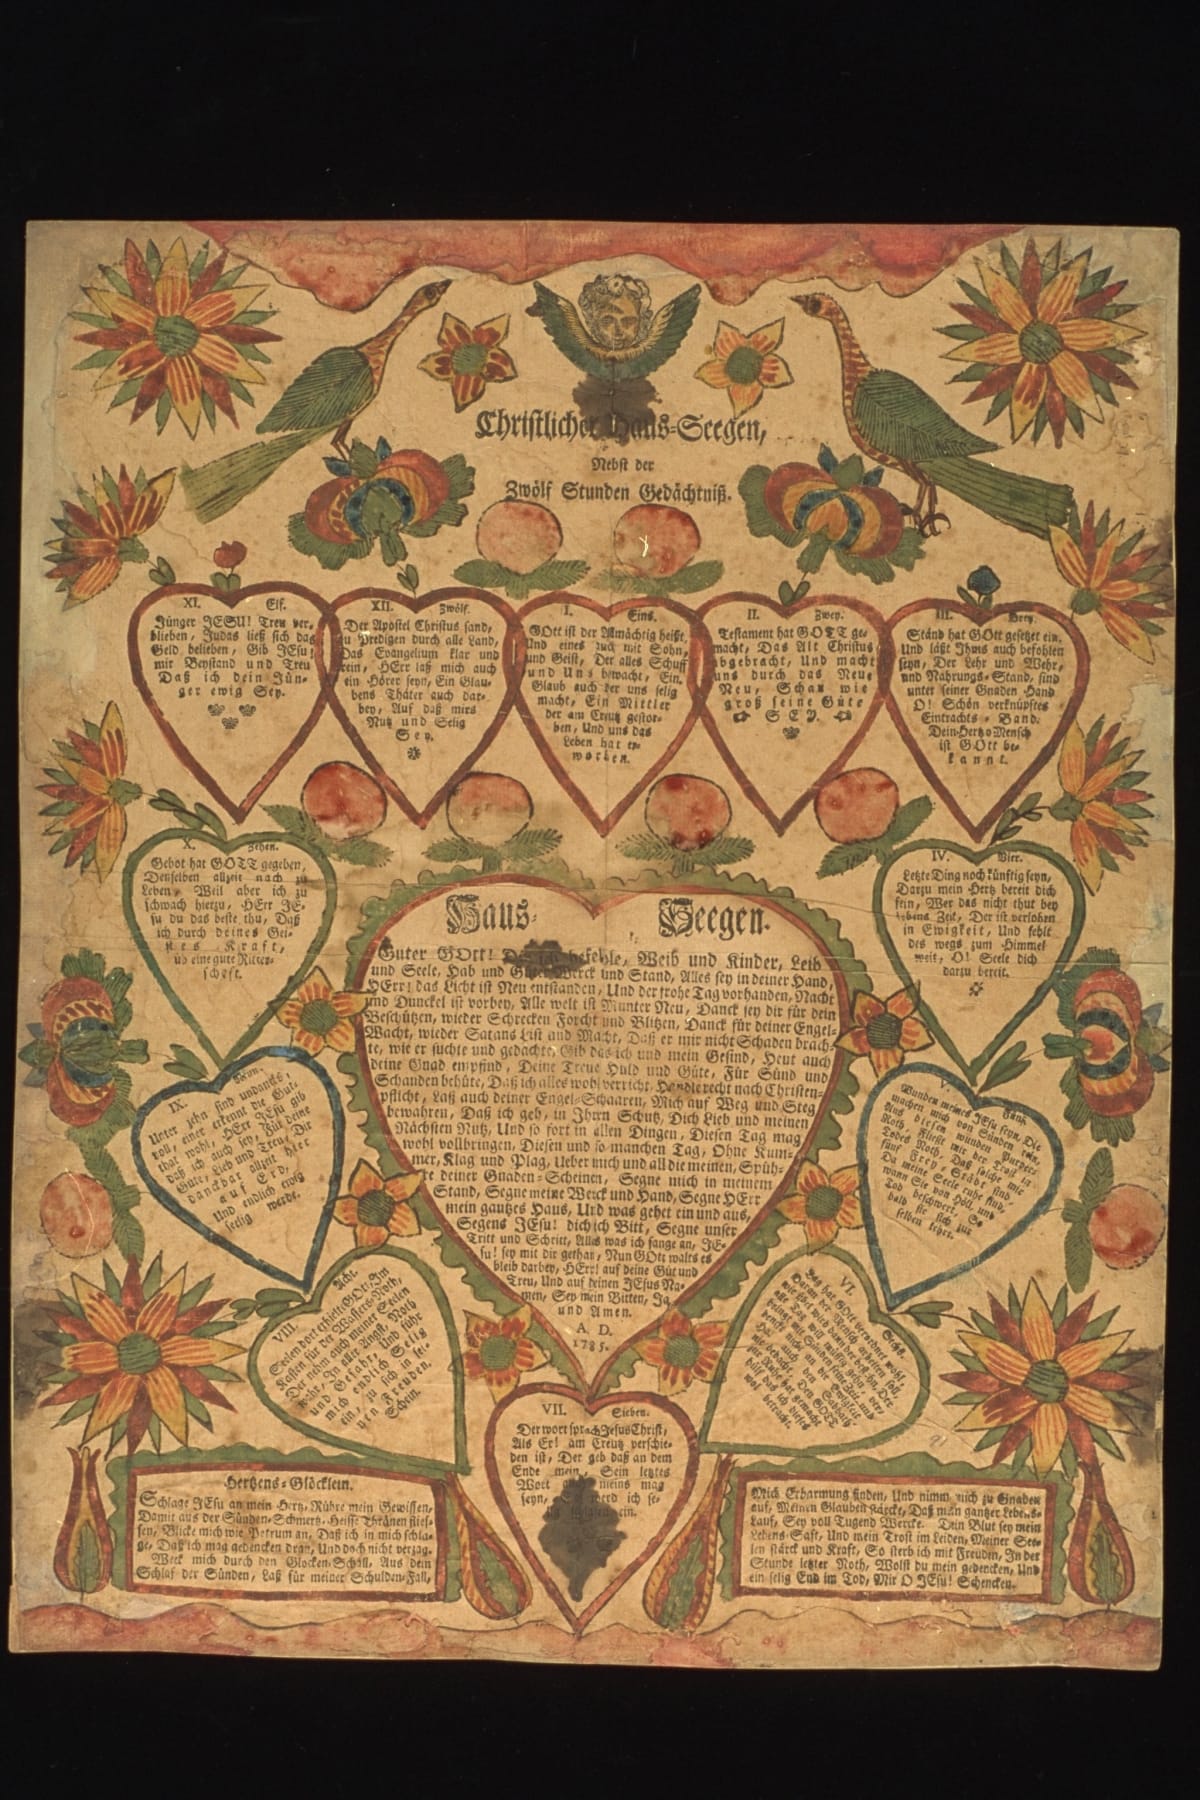 Christlicher Haus-Seegen,
Nebst der
Zwölf Stunden Gedächtniß.
XI. Elf.
Jünger JESU! Treu ver-
blieben, Judas ließ sich das
Geld belieben, Gib JEsu!
mir Beystand und Treu
Daß ich dein Jün-
ger ewig Sey.
XII. Zwölf.
Der Apostel Christus sand,
zu Predigen durch alle Land,
Das Evangelium klar und
rein, HErr laß mich auch
ein Hörer seyn, Ein Glau-
bens Thäter auch dar-
bey, Auf daß mirs
Nutz und Selig
Sey.
I. Eins.
GOtt ist der Allmächtig heißt,
Und eines auch mit Sohn,
und Geist, Der alles Schuff
und Uns bewacht, Ein
Glaub auch der uns selig
macht, Ein Mittler
der am Creutz gestor-
ben, Und uns das
Leben hat er-
worben.
II. Zwey.
Testament hat GOTT ge-
macht, Das Alt Christus
abgebracht, Und macht
uns durch das Neu
Neu, Schau wie
groß seine Güte
SEY.
III. Drey.
Ständ hat GOtt gesetzet ein,
Und läßt Ihms auch befohlen
seyn, Der Lehr und Wehr,
und Nahrungs-Stand, sind
unter seiner Gnaden Hand
O! Schön verknüpftes
Eintrachts-Band.
Dein Hertz o Mensch
ist GOtt be-
kannt.
X. Zehen.
Gebot hat GOTT gegeben,
Denselben allzeit nach zu
Leben, Weil aber ich zu
schwach hierzu, HErr JE-
su du das beste thu, Daß
ich durch deines Gei-
stes Kraft,
üb eine gute Ritter-
schaft.
IV. Vier.
Letzte Ding noch künftig seyn,
Darzu mein Hertz bereit dich
fein, Wer das nicht thut bey
lebens Zeit, Der ist verlohren
in Ewigkeit, Und fehlt
des wegs zum Himmel
weit, O! Seele dich
darzu bereit.
Haus-Seegen.
Guter GOtt! Dir ich befehle, Weib und Kinder, Leib
und Seele, Hab und Güter Werck und Stand, Alles sey in deiner Hand,
HErr! das Licht ist Neu entstanden, Und der frohe Tag vorhanden, Nacht
und Dunckel ist vorbey, Alle welt ist Munter Neu, Danck sey dir für dein
Beschützen, wieder Schrecken Forcht und Blitzen, Danck für deiner Engel-
Wacht, wieder Satans List and Macht, Daß er mir nicht Schaden brach-
te, wie er suchte und gedachte, Gib das ich und mein Gesind, Heut auch
deine Gnad empfind, Deine Treue Huld und Güte, Für Sünd und
Schanden behüte, Daß ich alles wohl verricht, Handle recht nach Christen-
pflicht, Laß auch deiner Engel-Schaaren, Mich auf Weg und Steg
bewahren, Daß ich geh, in Ihrn Schutz, Dich Lieb und meinen
Nächsten Nutz, Und so fort in allen Dingen, Diesen Tag mag
wohl vollbringen, Diesen und so manchen Tag, Ohne Kum-
mer, Klag und Plag, Ueber mich und all die meinen, Spüh-
re deiner Gnaden-Scheinen, Segne mich in meinem
Stand, Segne meine Werck und Hand, Segne HErr
mein gantzes Haus, Und was gehet ein und aus,
Segens JEsu! dich ich Bitt, Segne unser
Tritt und Schritt, Alles was ich fange an, JE-
su! sey mit dir gethan, Nun GOtt walts es
bleib darbey, HErr! auf deine Güt und
Treu, Und auf deinen JEsus Na-
men, Sey mein Bitten, Ja
und Amen.
A. D.
1785.
IX. Neun.
Unter zehn sind undancks,
voll, einer erkent die Gut-
that wohl, HErr JEsu gib
daß ich auch sey, Für deine
Güte, Lieb und Treu, Dir
danckbar allzeit hier
auf Erd,
Und endlich ewig
selig werde.
V. Fünf.
Wunden meines JEsu seyn, Die
machen mich von Sünden rein,
Aus diesen wunden Purper-
Roth, Fließt mir der Trost in
Todes Noth, Daß solche mir
fünf Frey-Städte sind
Da meine Seele ruhe find,
wann Sie von Höll, und
Tod beschwert, So
bald sie sich zur
selben kehrt.
VIII. Acht.
Seelen dort erhielt GOtt, Im
Kasten für der Wassers-Noth,
Der nahm auch meiner Seelen
wahr, In aller Angst, Noth
und Gefahr, Und führ
mich endlich Selig
ein, zu sich in sei-
nen Freuden,
Schein.
VI. Sechs.
Tag hat GOtt verordnet wohl,
Daran der Mensch arbeiten soll,
VII. Sieben.
Der wort sprach JesusChrist,
Als Er! am Creutz verschie-
den ist, Der geb daß an dem
Ende mein, Sein letztes
Wort auch meins mag
seyn, werd ich se-
lig schlafen ein.
Hertzens-Glöcklein.
Schlage JEsu an mein Hertz, Rühre mein Gewissen,
Damit aus der Sünden-Schmertz, Heisse Thränen flies-
sen, Blicke mich wie Petrum an, Daß ich in mich schla-
ge, Daß ich mag gedencken dran, Und doch nicht verzag.
Weck mich durch den Glocken-Schall, Aus dem
Schlaf der Sünden, Laß für meiner Schulden-Fall,
Mich Erbarmung finden, Und nimm mich zu Gnaden
auf, Meinen Glauben stärckt, Daß mein gantzer Lebens-
Lauf, Sey voll Tugend Wercke. Dein Blut sey mein
Lebens-Saft, Und mein Trost im Leiden, Meiner See-
len stärck und Kraft, So sterb ich mit Freuden, In der
Stunde letzter Noth, Wollst du mein gedencken, Und
ein selig End im Tod, Mir O JEsu! Schencken.